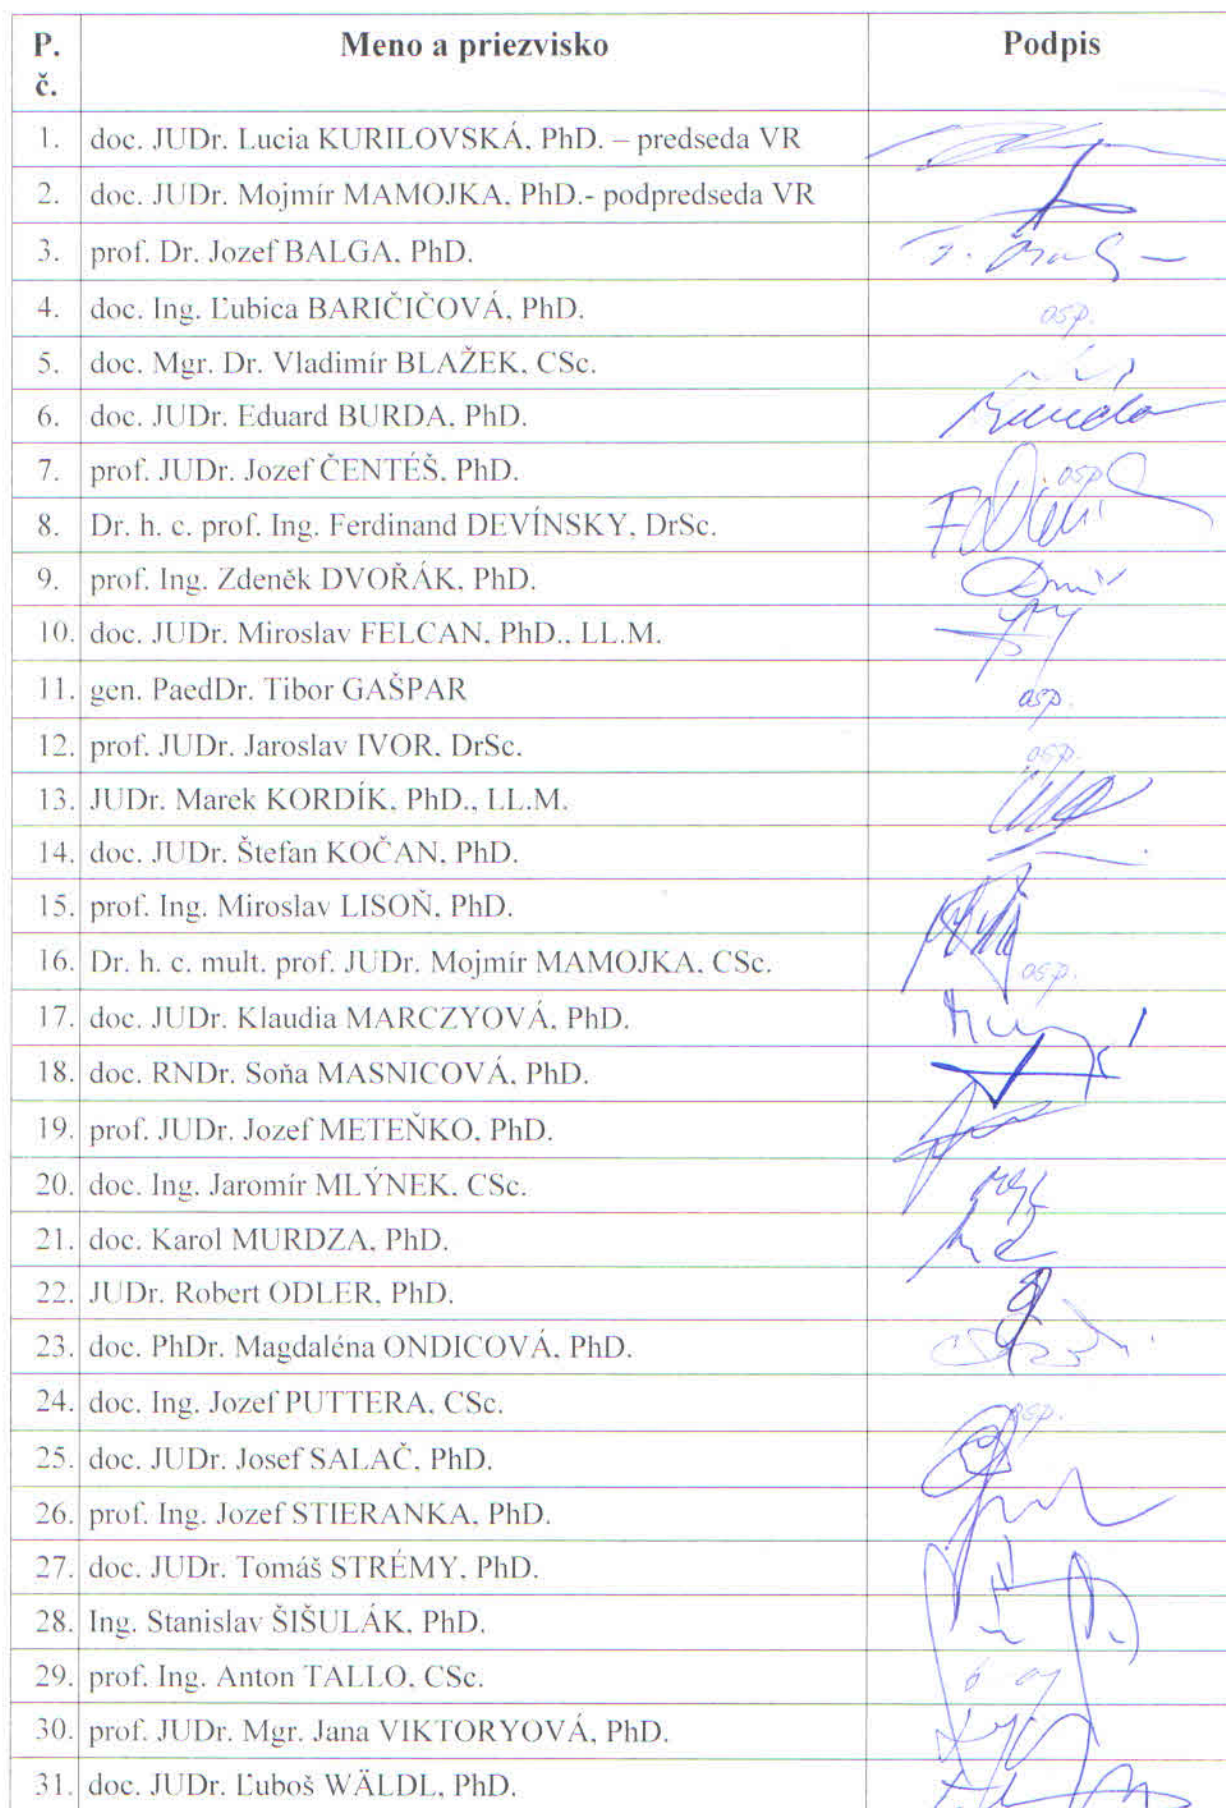 P. č. Meno a priezvisko Podpis
1. doc. JUDr. Lucia KURILOVSKÁ, PhD. – predseda VR
2. doc. JUDr. Mojmír MAMOJKA, PhD.- podpredseda VR
3. prof. Dr. Jozef BALGA, PhD.
4. doc. Ing. Ľubica BARIČIČOVÁ, PhD. osp.
5. doc. Mgr. Dr. Vladimír BLAŽEK, CSc.
6. doc. JUDr. Eduard BURDA, PhD. Burda
7. prof. JUDr. Jozef ČENTÉŠ, PhD. osp
8. Dr. h. c. prof. Ing. Ferdinand DEVÍNSKY, DrSc.
9. prof. Ing. Zdeněk DVOŘÁK, PhD.
10. doc. JUDr. Miroslav FELCAN, PhD., LL.M.
11. gen. PaedDr. Tibor GAŠPAR osp.
12. prof. JUDr. Jaroslav IVOR, DrSc. osp.
13. JUDr. Marek KORDÍK, PhD., LL.M.
14. doc. JUDr. Štefan KOČAN, PhD.
15. prof. Ing. Miroslav LISOŇ, PhD.
16. Dr. h. c. mult. prof. JUDr. Mojmír MAMOJKA, CSc. osp.
17. doc. JUDr. Klaudia MARCZYOVÁ, PhD.
18. doc. RNDr. Soňa MASNICOVÁ, PhD.
19. prof. JUDr. Jozef METEŇKO, PhD.
20. doc. Ing. Jaromír MLÝNEK, CSc.
21. doc. Karol MURDZA, PhD.
22. JUDr. Robert ODLER, PhD.
23. doc. PhDr. Magdaléna ONDICOVÁ, PhD.
24. doc. Ing. Jozef PUTTERA, CSc. osp.
25. doc. JUDr. Josef SALAČ, PhD.
26. prof. Ing. Jozef STIERANKA, PhD.
27. doc. JUDr. Tomáš STRÉMY, PhD.
28. Ing. Stanislav ŠIŠULÁK, PhD.
29. prof. Ing. Anton TALLO, CSc.
30. prof. JUDr. Mgr. Jana VIKTORYOVÁ, PhD.
31. doc. JUDr. Ľuboš WÄLDL, PhD.